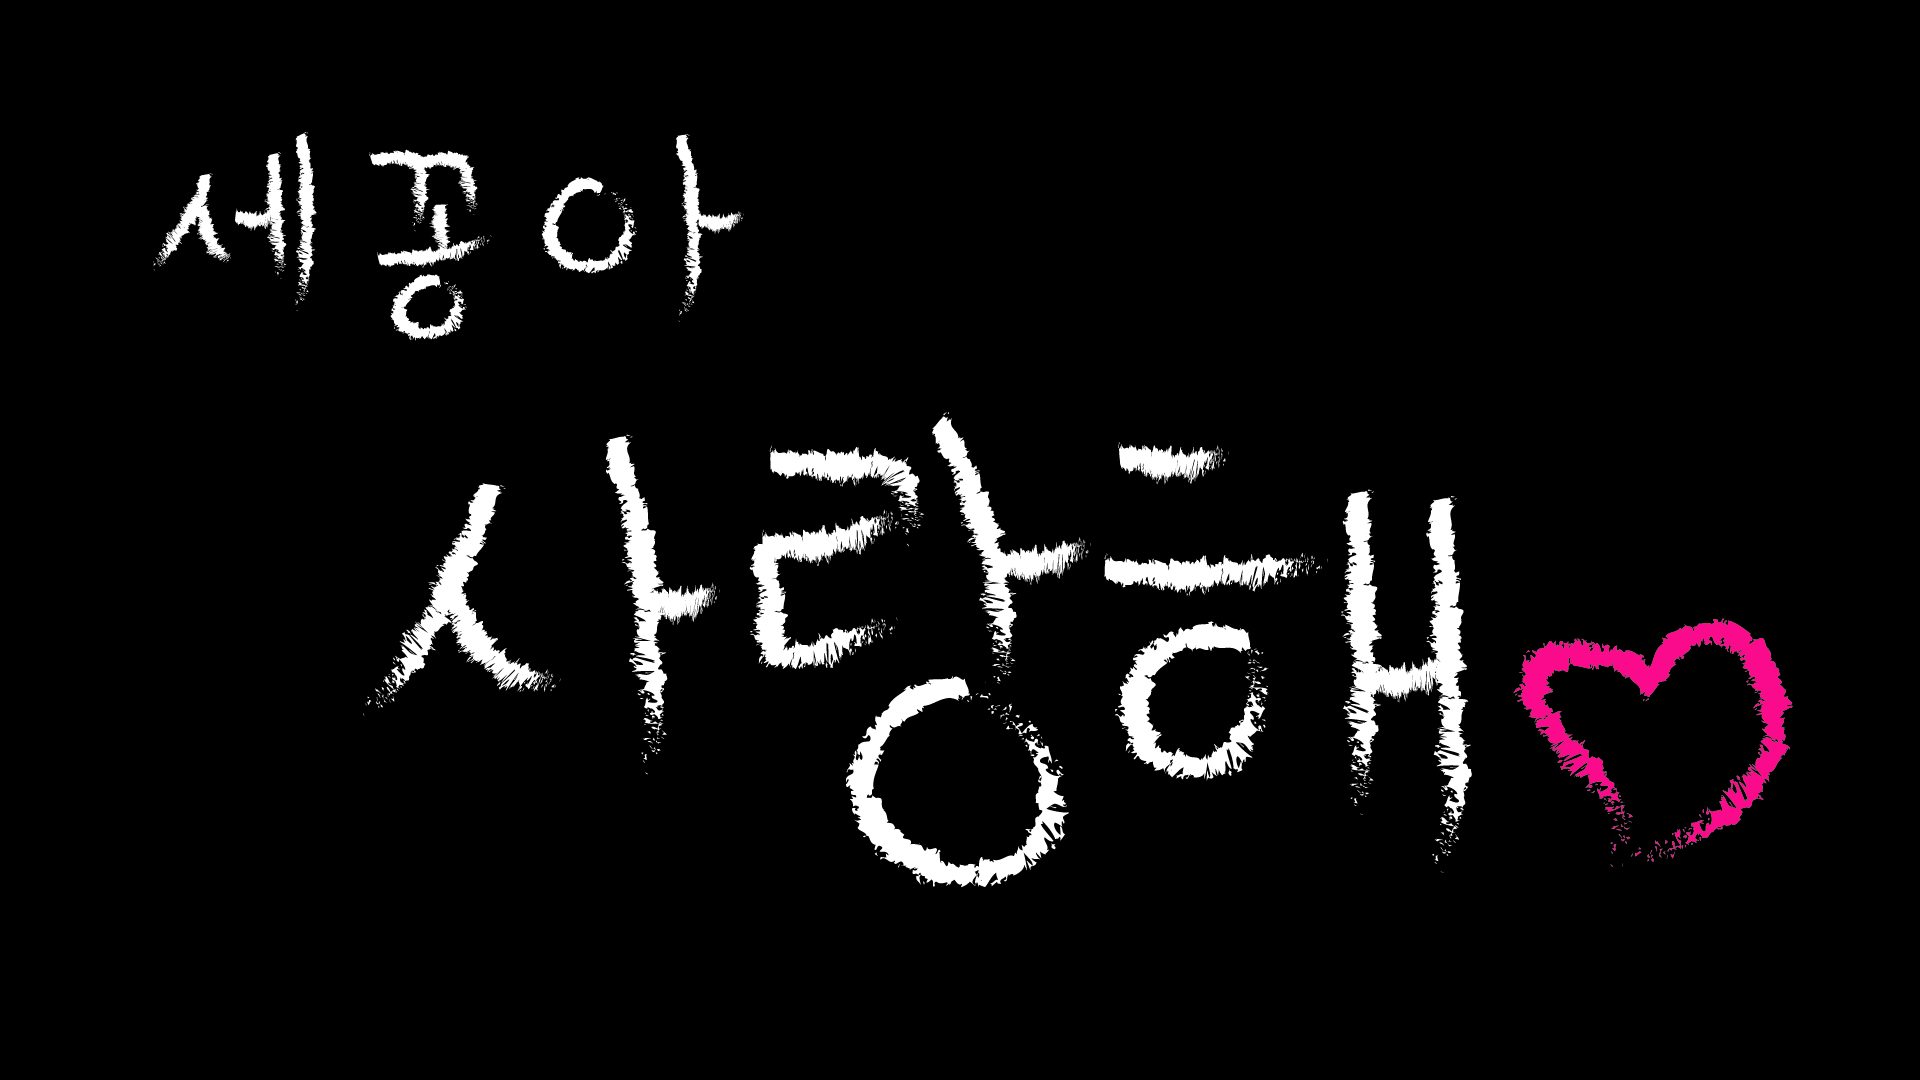 세꽁아
사랑해♡